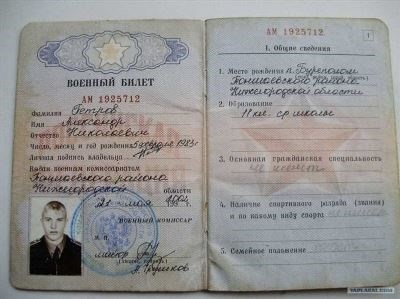 ВОЕННЫЙ БИЛЕТ
АМ 1925712
Фамилия Петров
Имя Александр
Отчество Николаевич
Число, месяц и год рождения 1983г
Личная подпись владельца
Выдан военным комиссариатом
Тоншаевского района
Нижегородской области
ВОЕННЫЙ КОМИССАР
М. П.
майор
АМ 1925712
1
I. Общие сведения
1. Место рождения п. Буреполом
Тоншаевского района
Нижегородской области
2. Образование
11 кл. ср школы
3. Основная гражданская специальность
не имеет
4. Наличие спортивного разряда (звания)
и по какому виду спорта не имеет
5. Семейное положение
YAPLAKAL.COM